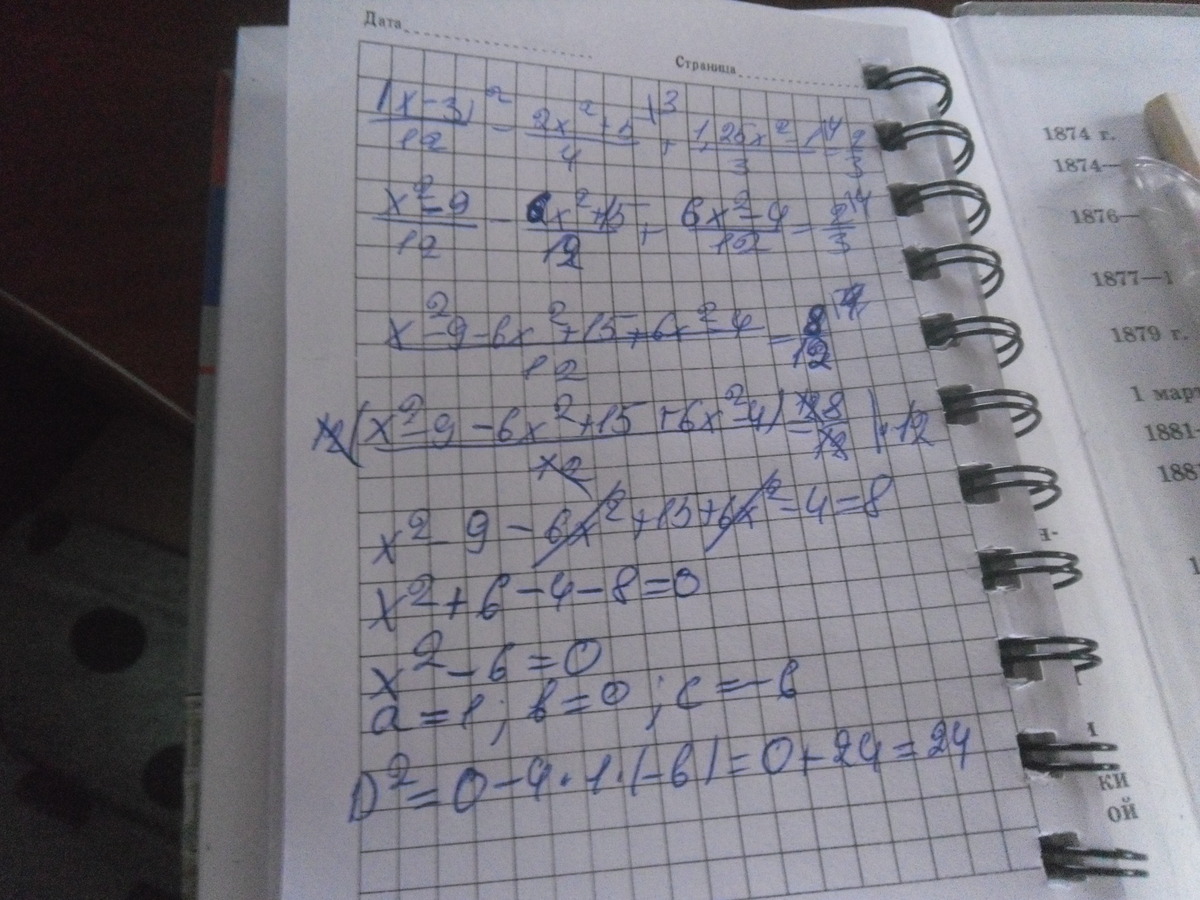 Дата
Страница
(x-3)²/12 - 2x²+5/4 \3 + 1,25x²-1/3 \4 = 2/3
x²-9/12 - 6x²+15/12 + 6x²-4/12 = 2/3 \4
x²-9-6x²+15+6x²-4/12 = 8/12
12 (x²-9-6x²+15+6x²-4)/12 = 8/12 ) · 12
x²-9-6x²+15+6x²-4=8
x²+6-4-8=0
x²-6=0
a=1; b=0; c=-6
D²=0-4·1·(-6)=0+24=24
1874 г.
1874—
1876—
1877—1
1879 г.
1 март
1881-
188
н-
1
и
ки
ой